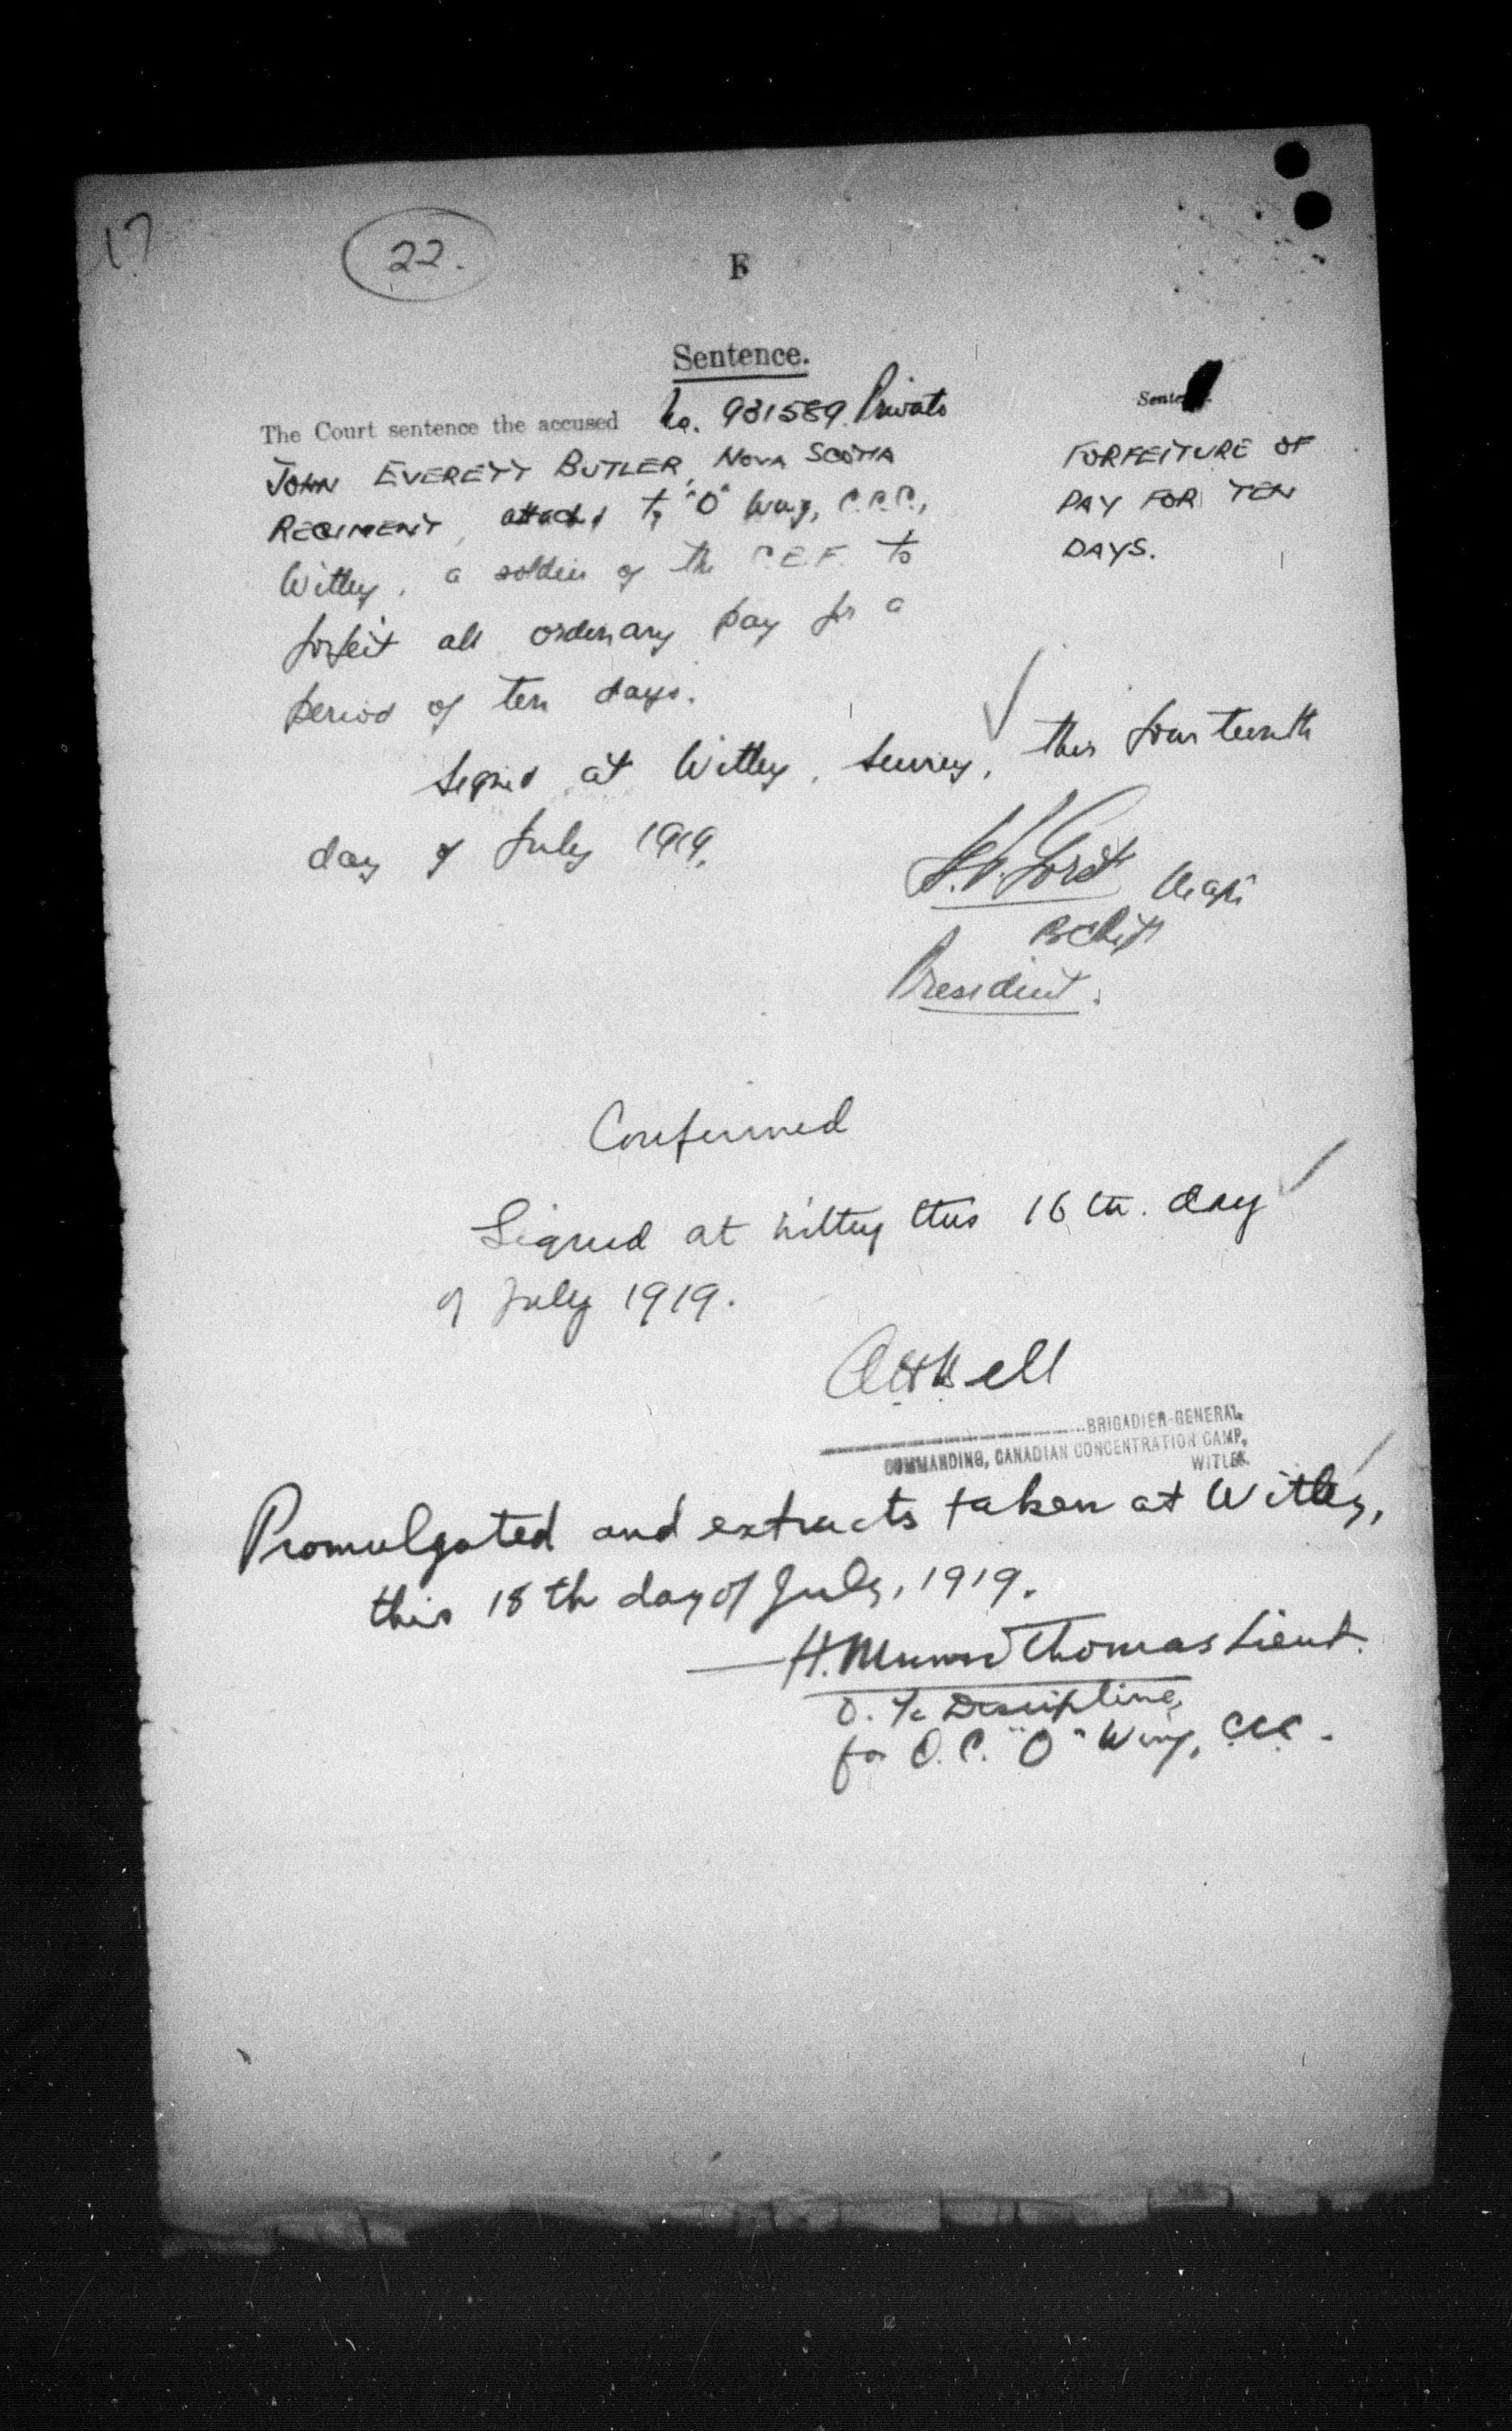 17
22.
F
Sentence.
Sente
The Court sentence the accused No. 931589. Private
JOHN EVERETT BUTLER, NOVA SCOTIA
REGIMENT, attached to "O" Wing, C.C.C.,
Witley, a soldier of the C.E.F. to
forfeit all ordinary pay for a
period of ten days.
FORFEITURE OF
PAY FOR TEN
DAYS.
Signed at Witley, Surrey, this fourteenth
day of July 1919.
President.
Confirmed
Signed at Witley this 16th. day
of July 1919.
BRIGADIER-GENERAL,
COMMANDING, CANADIAN CONCENTRATION CAMP,
WITLEY.
Promulgated and extracts taken at Witley,
this 18th day of July, 1919.
H. Munro Thomas Lieut.
O. i/c Discipline,
for O.C. "O" Wing, C.C.C.